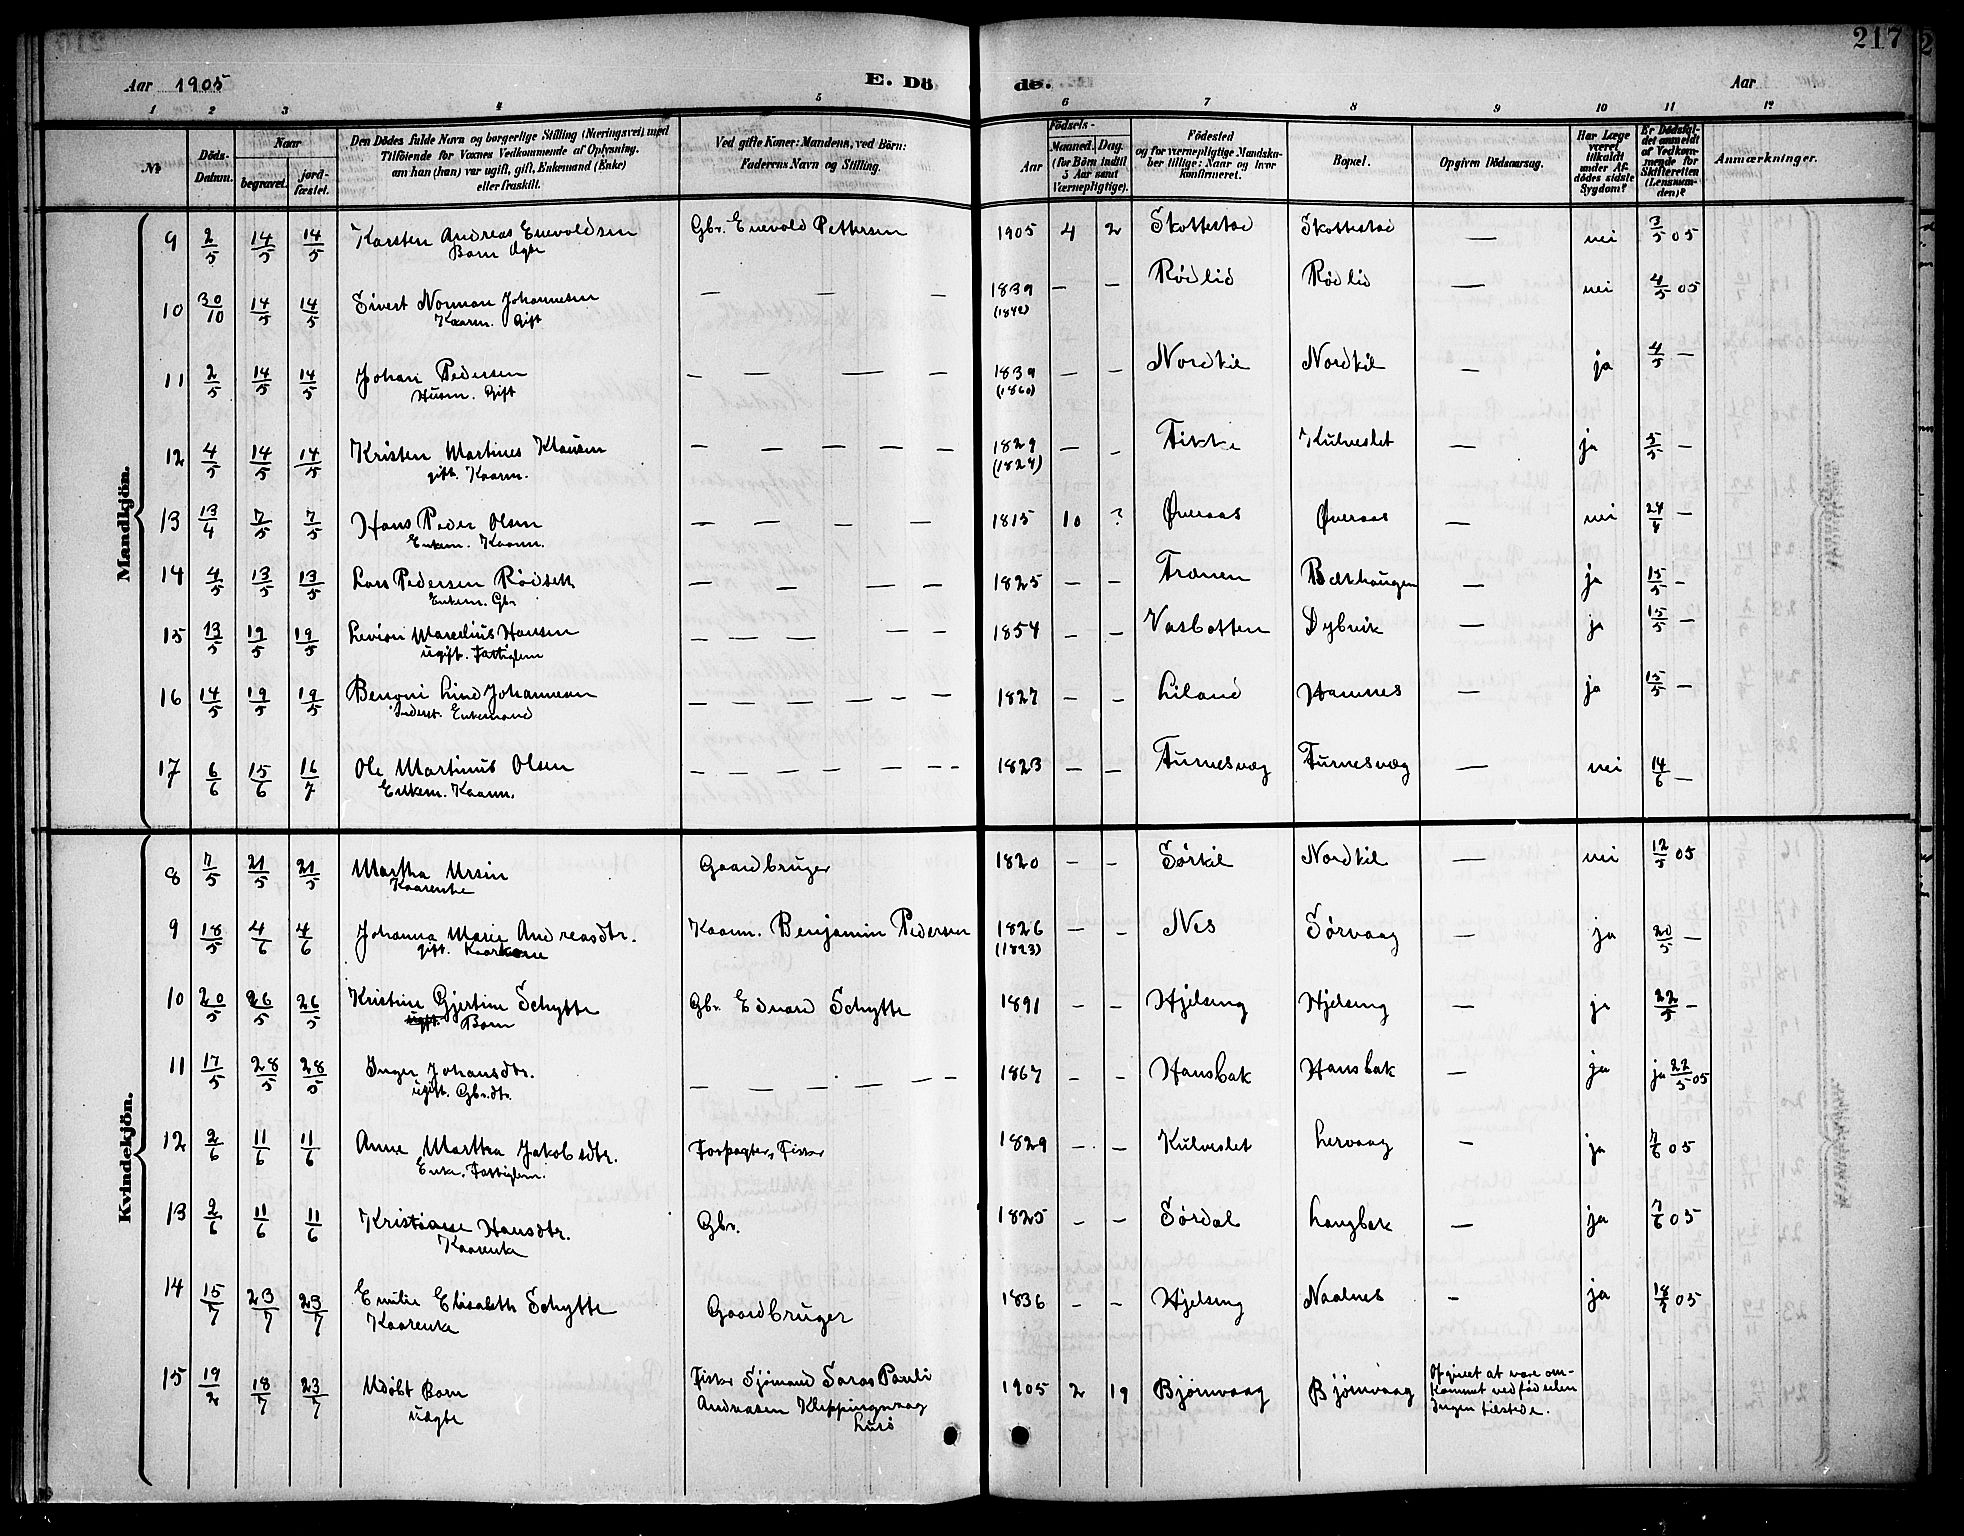 217
Aar 1905 E. Dö de. Aar
1 2 3 4 5 6 7 8 9 10 11 12
№ Döds-Datum. Naar begravet. jordfæstet. Den Dödes fulde Navn og borgerlige Stilling (Næringsvei) med Tilföiende for Voxnes Vedkommende af Oplysning, om han (hun) var ugift, gift, Enkemand (Enke) eller fraskilt. Ved gifte Koner: Mandens, ved Börn: Faderens Navn og Stilling. Födsels- Aar Maaned. Dag. (for Börn indtil 5 Aar samt Værnepligtige). Födested og for værnepligtige Mandskaber tillige: Naar og hvor konfirmeret. Bopæl. Opgiven Dödsaarsag. Har Læge været tilkaldt under Afdödes sidste Sygdom? Er Dödsfaldet anmeldt af Vedkommende for Skifteretten (Lensmanden)? Anmærkninger.
Mandkjön.
9 2/5 14/5 14/5 Karsten Andreas Enevoldsen Gbr. Enevold Pettersen 1905 4 2 Skottestad Skottestad — nei 3/5 05
Barn Ægte
10 30/10 14/5 14/5 Sivert Norman Johannesen — — — 1839 — — Rødlid Rødlid — nei 4/5 05
Kaarm. Gift (1842)
11 2/5 14/5 14/5 Johan Pedersen — — — — 1839 — — Nordkil Nordkil — ja 4/5 —
Husm. Gift (1860)
12 4/5 14/5 14/5 Kristen Martines Klausen — — — — — 1829 — — Fikke Kulveslet — ja 5/5 —
gift. Kaarm. (1824)
13 13/4 7/5 7/5 Hans Peder Olsen — — — — 1815 10 ? Øveraas Øveraas — nei 24/4 —
Enkem. Kaarm.
14 4/5 13/5 13/5 Lars Pedersen Rödseth — — — — 1825 — — Trænen Bækhaugen — ja 15/5 —
Enkem. Gbr
15 13/5 19/5 19/5 Levion Marelius Hansen — — — — — 1854 — — Vasbotten Dybvik — ja 15/5 —
ugift. Fattiglem
16 14/5 19/5 19/5 Benoni Lind Johannesen — — — — — — 1827 — — Liland Hamnes — ja 15/5 —
Inderst. Enkemand
17 6/6 15/6 16/7 Ole Martinus Olsen — — — — — — — 1823 — — Furnesvæg Furnesvæg — nei 14/6 —
Enkem. Kaarm.
Kvindekjön.
8 7/5 21/5 21/5 Martha Ursin Gaardbruger 1820 — — Sørkil Nordkil — nei 12/5 05
Kaarenke
9 18/5 4/6 4/6 Johanna Marie Andreasdtr. Kaarm. Benjamin Pedersen 1826 — — Nes Sørvaag — ja 20/5 —
gift. Kaarkone (1823)
10 20/5 26/5 26/5 Kristine Gjertine Schytte Gbr. Edvard Schytte 1891 — — Hjelseng Hjelseng — ja 22/5 —
ugft. Barn
11 17/5 28/5 28/5 Inger Johansdtr. — — — — — — 1867 — — Hansbak Hansbak — ja ja 22/5 05
ugift. Gbr.dtr.
12 2/6 11/6 11/6 Anne Martha Jakobsdtr. Forpagter, Fisker 1829 — — Kulveslet Lervaag — ja 7/6 05
Enke. Fattiglem.
13 2/6 11/6 11/6 Kristiane Hansdtr. Gbr. 1825 — — Sørdal Langbak — ja 7/6 05
Kaarenke
14 15/7 23/7 23/7 Emilie Elisabeth Schytte Gaardbruger 1836 — — Hjelseng Naalnes — ja 18/7 05
Kaarenke
15 19/2 18/7 23/7 Udöbt Barn Fisker Sjömand Saras Pauli 1905 2 19 Bjørnvaag Bjørnvaag Opgivet at være om-
uægte Andreasen Kleppingvaag kommet ved fødselen
Ingen tilstede.